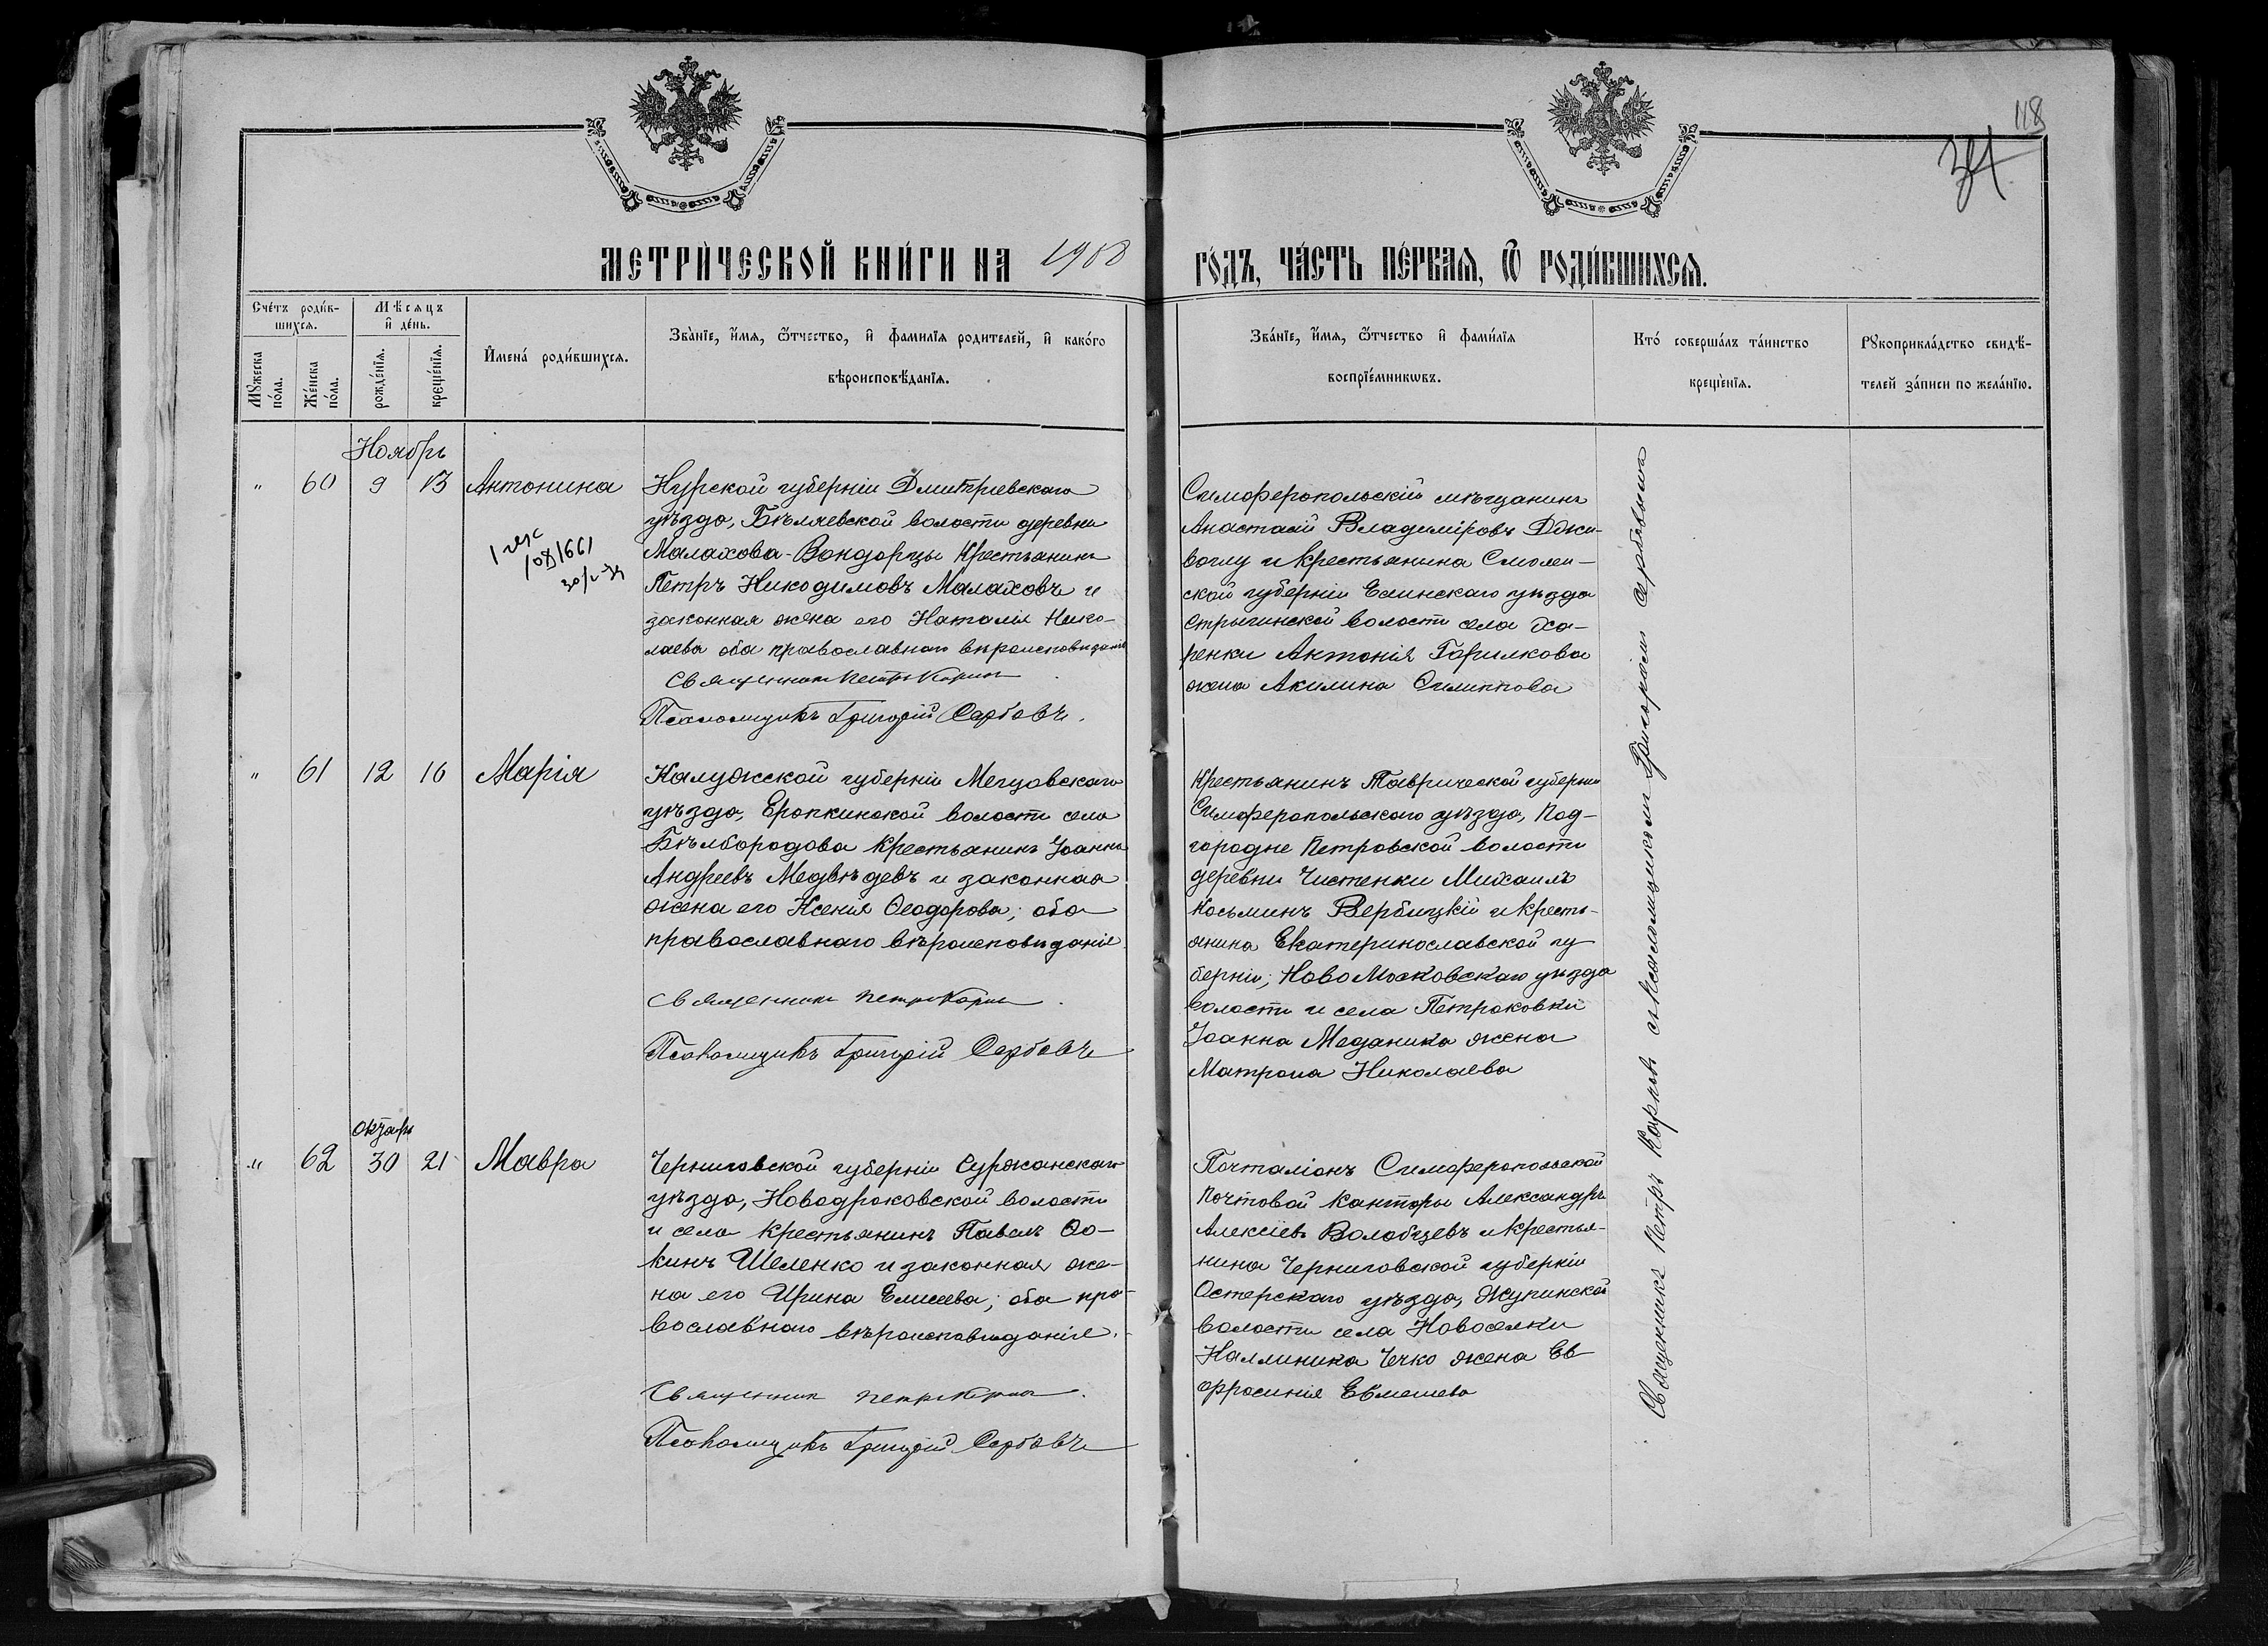 118
МЕТРИ́ЧЕСКОЙ КНИ́ГИ НА 1908 ГО́ДЪ, ЧА́СТЬ ПЕ́РВАЯ, Ѿ РОДИ́ВШИХСЯ.
Сче́тъ роди́в-
шихся.
Мѣсяцъ
и҆ де́нь.
Мꙋ́жеска
по́ла.
Же́нска
по́ла.
рожде́нїѧ.
креще́нїѧ.
И҆мена́ роди́вшихся.
Зва́нїе, и҆́мѧ, ѻ҆́тчество, и҆ фамилїѧ родителей, и҆ како́го
вѣроисповѣ́данїѧ.
Зва́нїе, и҆́мѧ, ѻ҆́тчество и҆ фами́лїѧ
воспрїе́мникѡвъ.
Кто́ соверша́лъ та́инство
креще́нїѧ.
Рꙋкоприкла́дство свидѣ́-
телей за́писи по жела́нїю.
Ноябрь
" 60 9 13 Антонина
Курской губерніи Дмитріевскаго
уѣзда, Бѣляевской волости деревни
Малахова-Вондарцы крестьянинъ
Петръ Никодимовъ Малаховъ и
законная жена его Наталія Нико-
лаева оба православнаго вѣроисповѣданія
Священникъ Петръ Карпов
Псаломщикъ Григорій Сербовъ.
Симферопольскій мѣщанинъ
Анастасій Владиміровъ Джи-
воглу и крестьянина Смолен-
ской губерніи Елнинскаго уѣзда
Стрыгинской волости села Ха-
ренки Антонія Гаврилкова
жена Акилина Филиппова
" 61 12 16 Марія
Калужской губерніи Мещовскаго
уѣзда, Еропкинской волости села
Бѣлбородова крестьянинъ Іоаннъ
Андреевъ Медвѣдевъ и законная
жена его Ксенія Ѳеодорова; оба
православнаго вѣроисповѣданія
Священникъ Петръ Карпов.
Псаломщикъ Григорій Сербовъ
Крестьянинъ Таврической губерніи
Симферопольскаго уѣзда, Под-
городне Петровской волости
деревни Чистенки Михаилъ
Косьминъ Вербицкій и кресть-
янина Екатеринославской гу
берніи, Ново Московскаго уѣзда
волости и села Петраковки
Іоанна Меданика жена
Матрона Николаева
Октябрь
" 62 30 21 Мавра
Черниговской губерніи Суражскаго
уѣзда, Новодроковской волости
и села крестьянинъ Павелъ Ѳо-
кинъ Шеленко и законная же-
на его Ирина Елисеева; оба пра-
вославнаго вѣроисповѣданія.
Священникъ Петръ Карпов.
Псаломщикъ Григорій Сербовъ
Почталіонъ Симферопольской
почтовой канторы Александръ
Алексіевъ Волобуевъ и крестья-
нина Черниговской губерніи
Остерскаго уѣзда, Жукинской
волости села Новоселки
Каллиника Чечко жена Ев
фросинія Евмениева
Священникъ Петръ Карповъ съ псаломщикомъ Григоріемъ Сербовымъ